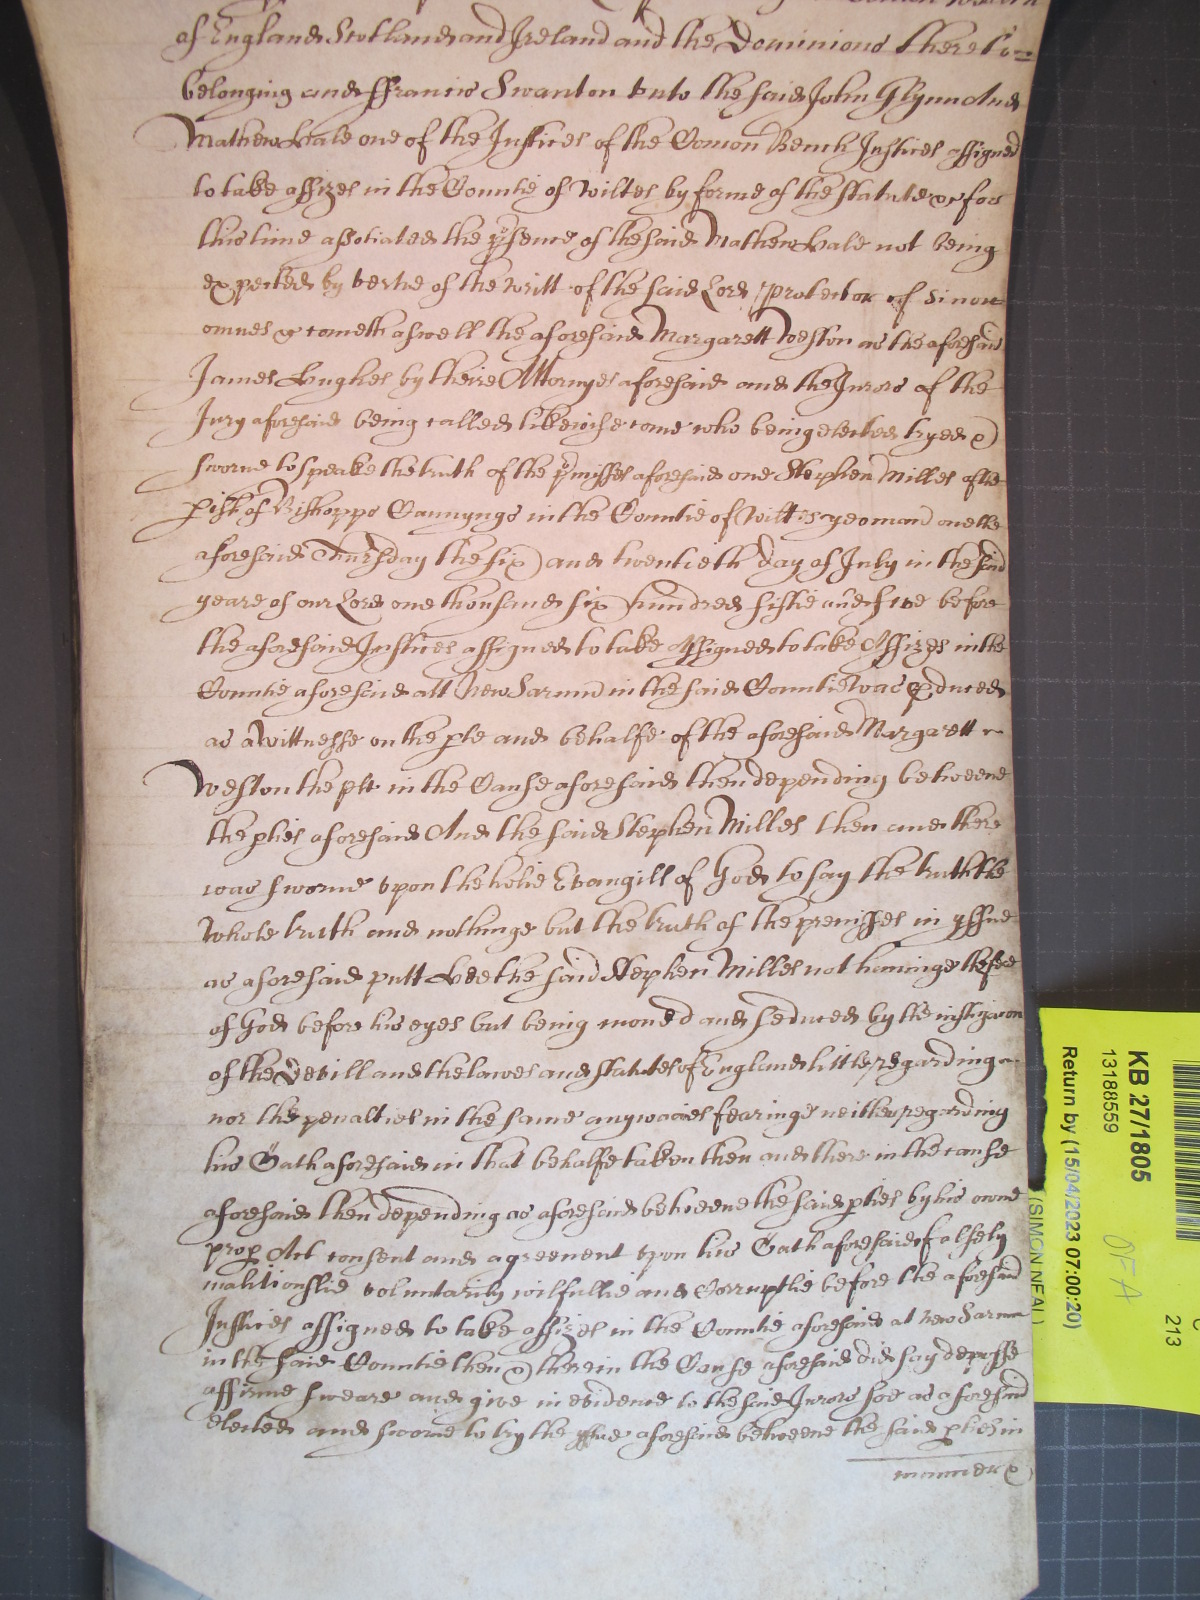 of England Scotland and Ireland and the Dominions thereto
belonging and ffrancis Swanton unto the said John Glynn And
Mathew Hale one of the Justices of the Comon Bench Justices assigned
to take assizes in the Countie of Wiltes by forme of the statute &c for
this time assotiated the p'sence of the said Mathew Hale not being
expected by vertue of the writt of the said Lord Protector of Si non
omnes &c cometh aswell the aforesaid Margarett Weston as the aforesaid
James Hughes by theire Attornyes aforesaid and the Jurors of the
Jury aforesaid being called likewise come who being elected tryed &
sworne to speake the truth of the p'misses aforesaid one Stephen Milles of the
pish of Bishopps Cannyngs in the Countie of Wiltes yeoman on the
aforesaid Thursday the six and twentieth day of July in the said
yeare of our Lord one thousand six hundred fiftie and five before
the aforesaid Justices assigned to take Assigned to take Assizes in the
Countie aforesaid att New Sarum in the said Countie was p'duced
as a wittnesse on the pte and behalfe of the aforesaid Margarett
Weston the plt in the Cause aforesaid then depending betweene
the pties aforesaid And the said Stephen Milles then and there
was sworne upon the holie Evangill of God to say the truth the
whole truth and nothinge but the truth of the premisses in yssue
as aforesaid putt Hee the said Stephen Milles not haninge the feare
of God before his eyes but being moved and seduced by the instigacon
of the Devill and the lawes and statutes of England little regarding
nor the penalties in the same any waies fearinge neither regarding
his Oath aforesaid in that behalfe taken then and there in the cause
aforesaid then depending as aforesaid betweene the said pties by his owne
prop Act consent and agreement upon his Oath aforesaid falsely
malitiouslie voluntarily wilfullie and Corruptlie before the aforesaid
Justices assigned to take assizes in the Countie aforesaid at New Sarum
in the said Countie then & there in the Cause aforesaid did say depose
affirme sweare and give in evidence to the said Jurors soe as aforesaid
elected and sworne to try the yssue aforesaid betweene the said pties in
manner &
KB 27/1805
13188559
Return by (15/04/2023 07:00:20)
(SIMON NEAL)
OFA
213